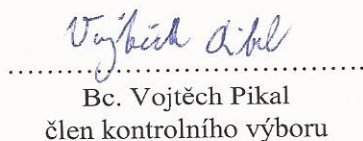 Vojtěch Pikal
....................................................
Bc. Vojtěch Pikal
člen kontrolního výboru